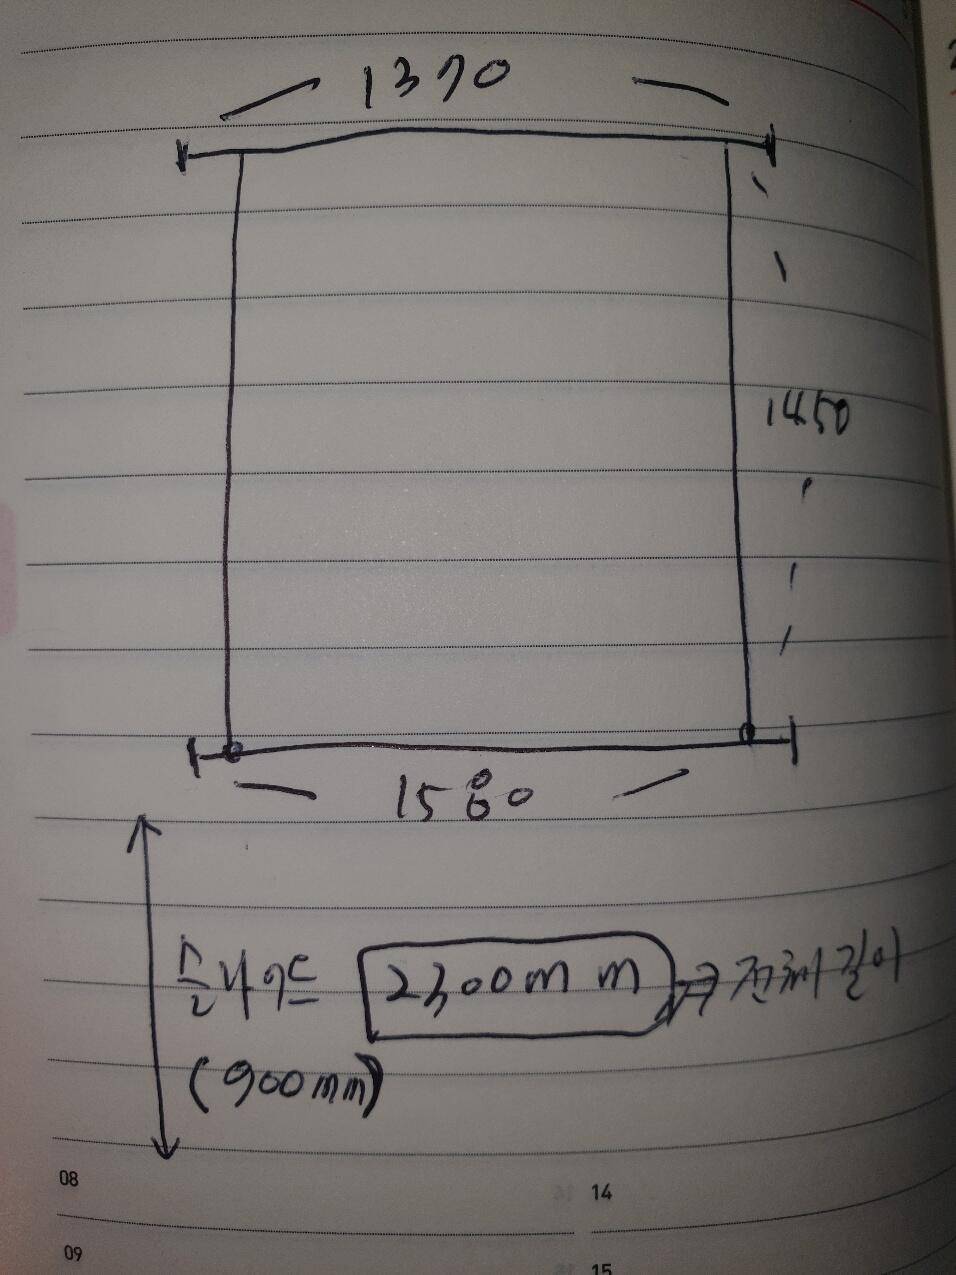 1370
1450
1580
슬라이드 2300mm ⇒ 전체길이
(900mm)
08
14
09
15